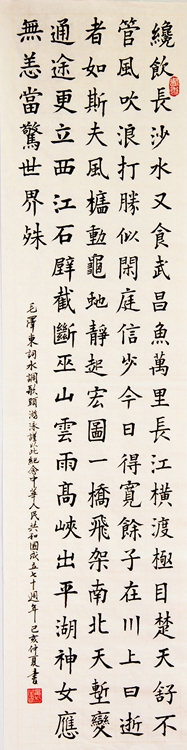 纔飲長沙水又食武昌魚萬里長江橫渡極目楚天舒不
管風吹浪打勝似閑庭信步今日得寬餘子在川上曰逝
者如斯夫風檣動龜虵靜起宏圖一橋飛架南北天塹變
通途更立西江石壁截斷巫山雲雨髙峽出平湖神女應
無恙當驚世界殊
毛澤東詞水調歌頭游泳謹以此紀念中華人民共和國成立七十週年己亥仲夏書